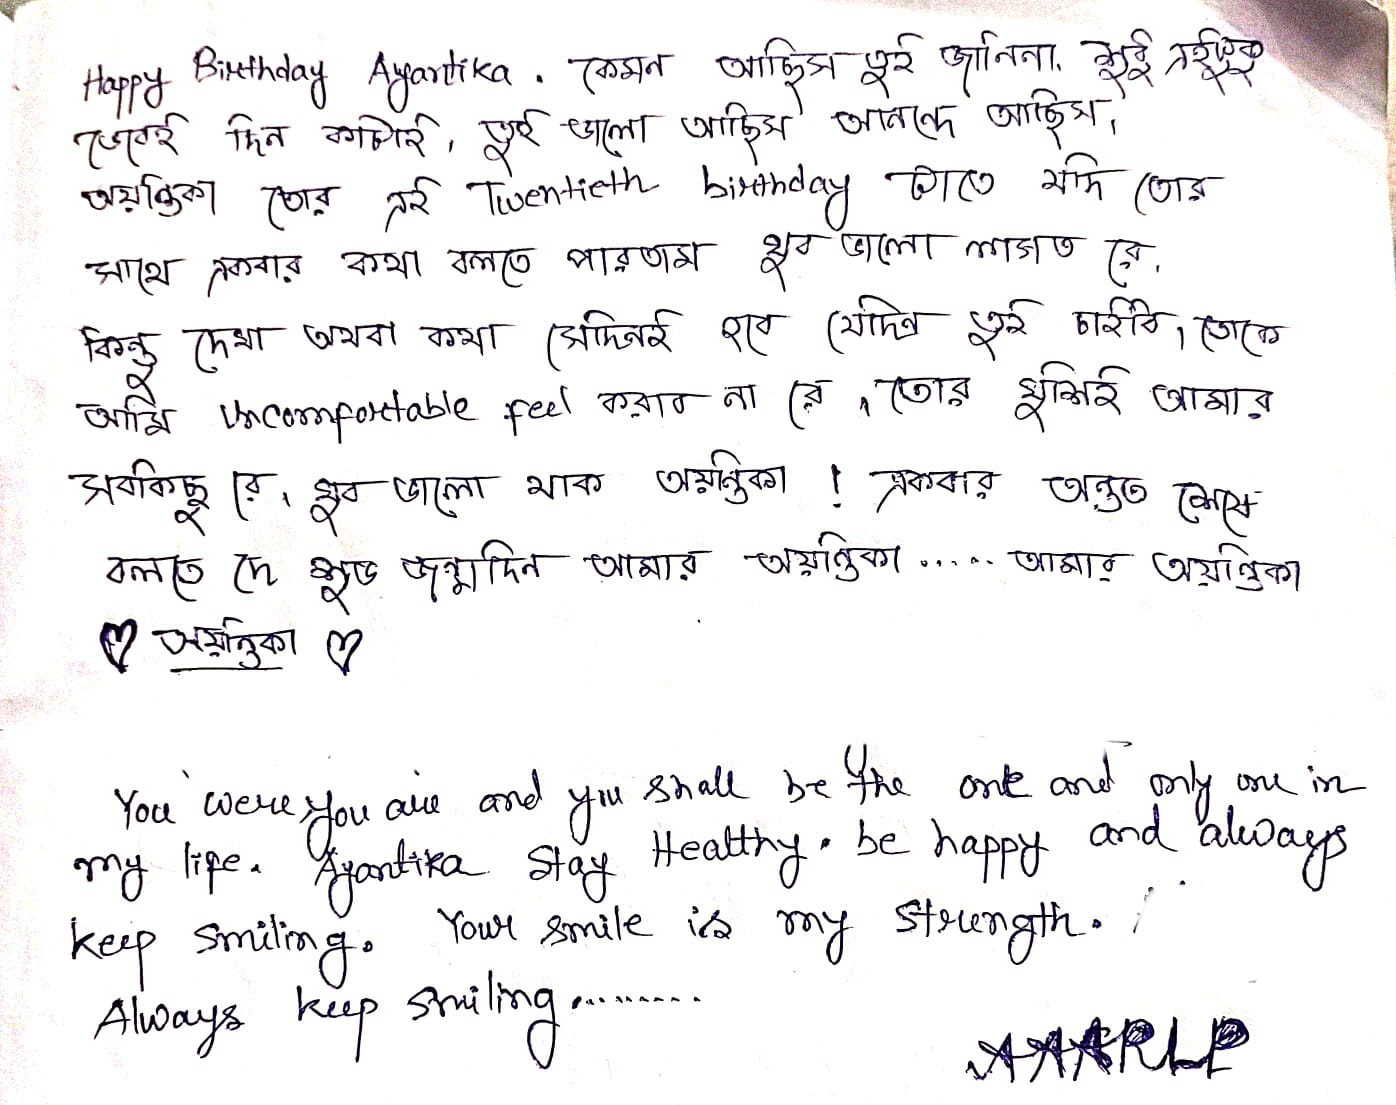 Happy Birthday Ayantika. কেমন আছিস তুই জানিনা, শুধু এইটুকু
ভেবেই দিন কাটাই, তুই ভালো আছিস আনন্দে আছিস,
অয়ন্তিকা তোর এই Twentieth birthday টাতে যদি তোর
সাথে একবার কথা বলতে পারতাম খুব ভালো লাগত রে,
কিন্তু দেখা অথবা কথা সেদিনই হবে যেদিন তুই চাইবি, তোকে
আমি Uncomfortable feel করাব না রে, তোর খুশিই আমার
সবকিছু রে, খুব ভালো থাক অয়ন্তিকা ! একবার অন্তত
বলতে দে শুভ জন্মদিন আমার অয়ন্তিকা ..... আমার অয়ন্তিকা
♡ অয়ন্তিকা ♡
You were, you are and you shall be the one and only one in
my life. Ayantika Stay Healthy. be happy and always
keep smiling. Your smile is my strength.
Always keep smiling.........
AAARLP